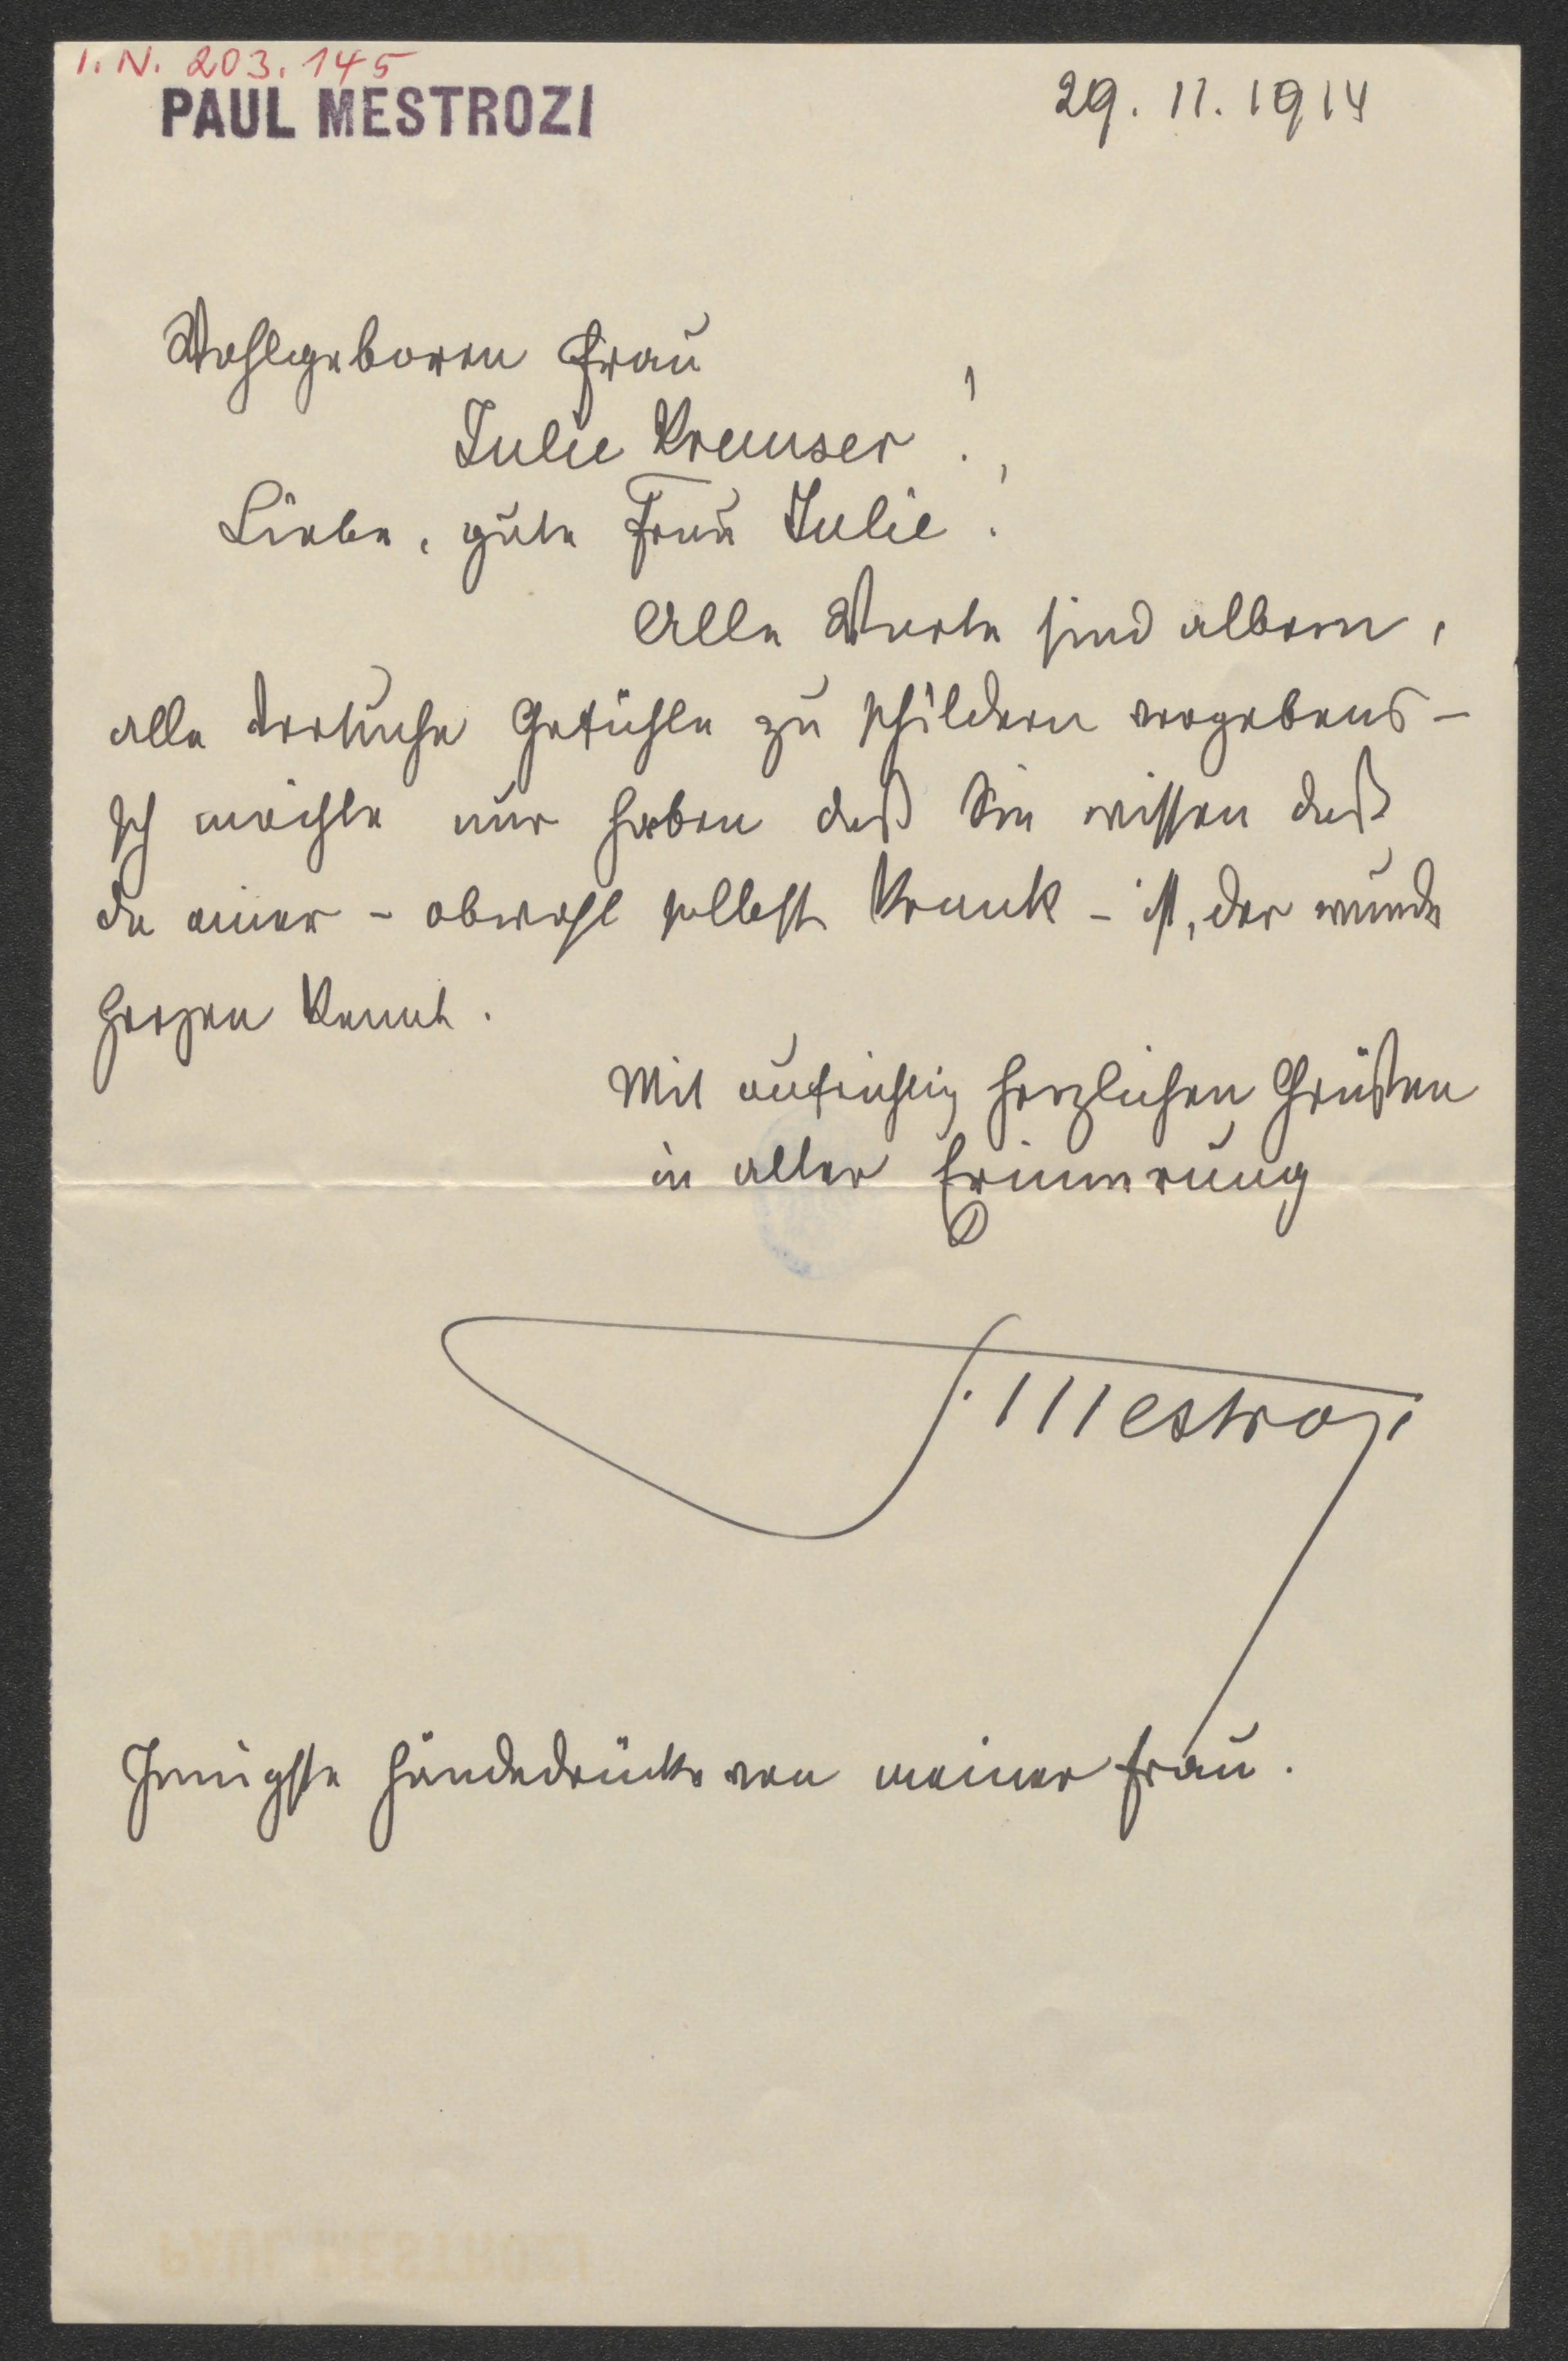 I. N. 203.145
PAUL MESTROZI
29. 11. 1914
Wohlgeboren Frau
Julie Kremser !
Liebe, gute Frau Julie !
Alle Worte sind albern,
alle Versuche Gefühle zu schildern vergebens –
Ich möchte nur haben daß Sie wissen daß
da einer – obwohl selbst krank – ist, der wunde
Herzen kennt.
Mit aufrichtig herzlichen Grüßen
in alter Erinnerung
P. Mestrozi
Innigste Händedrücke von meiner Frau.